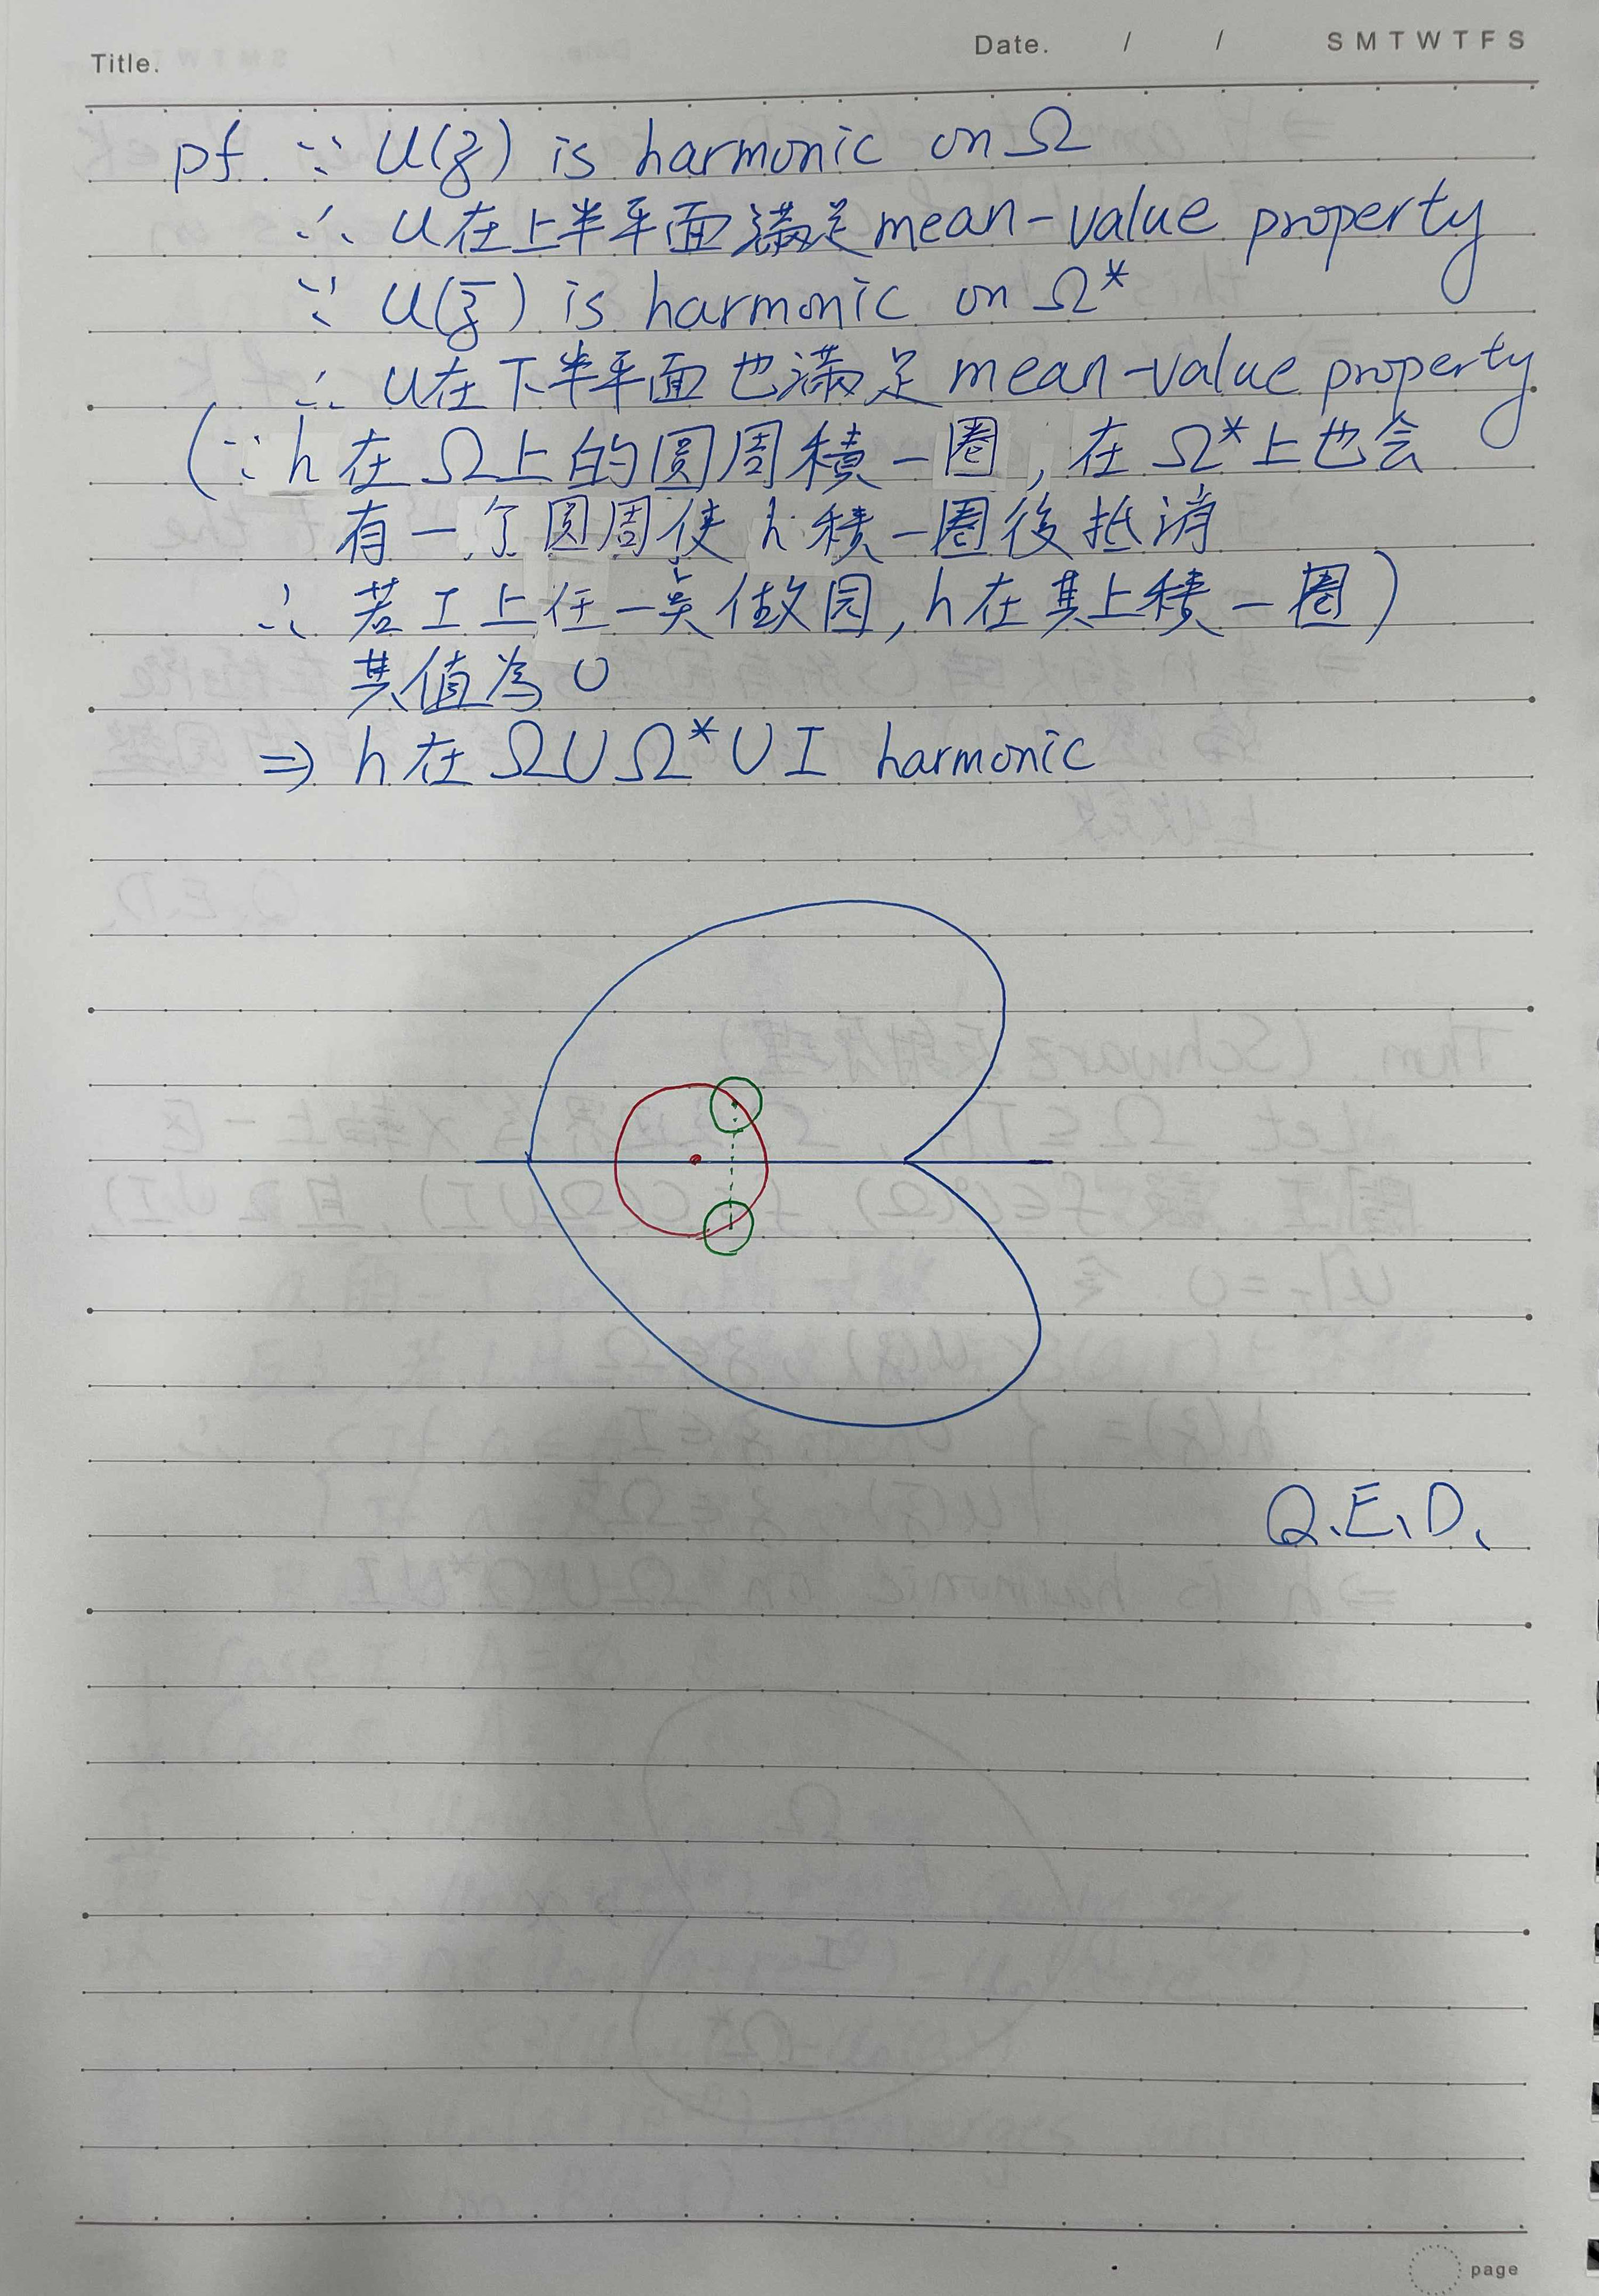 Title.
Date. / / S M T W T F S
pf. ∵ u(z) is harmonic on Ω
∴ u在上半平面滿足mean-value property
∵ u(z̄) is harmonic on Ω*
∴ u在下半平面也滿足 mean-value property
(∵ h 在 Ω上的圆周積一圈, 在 Ω*上也会
有一个圆周使 h 積一圈後抵消
∴ 若 I 上任一奌做园, h在其上積一圈)
其值為 0
⇒ h 在 Ω∪Ω*∪I harmonic
Q.E.D.
page